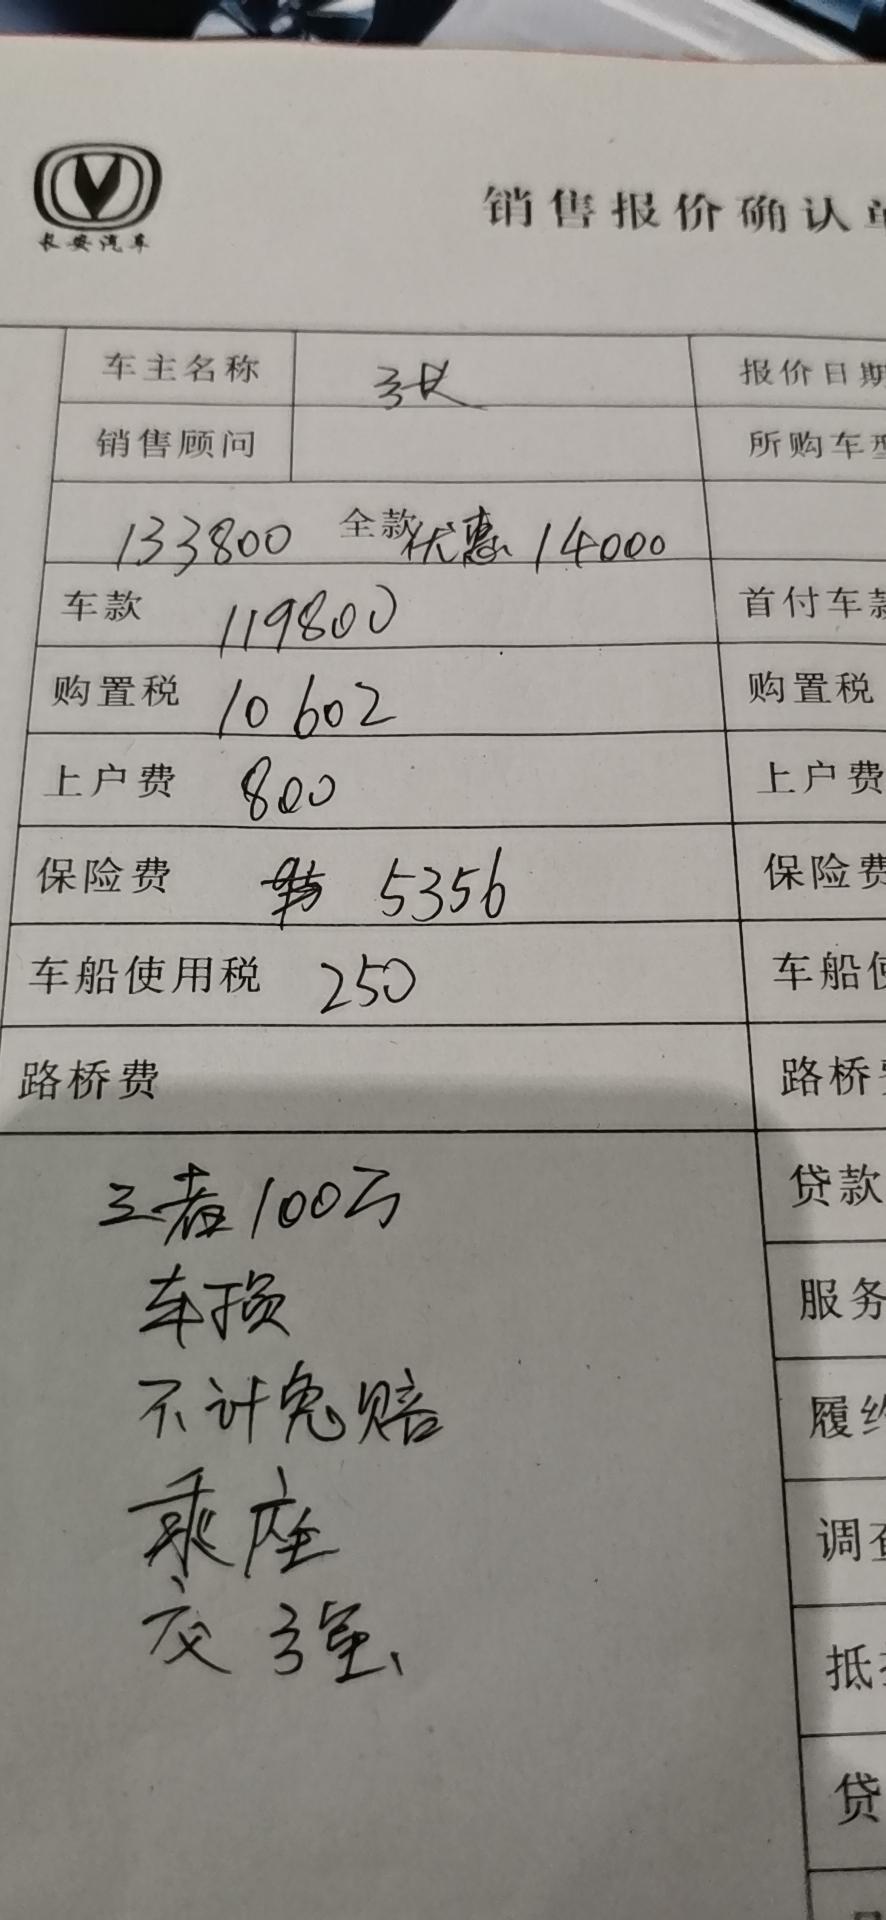 长安汽车
销售报价确认单
车主名称 张 报价日期
销售顾问 所购车型
133800 全款 优惠 14000
车款 119800 首付车款
购置税 10602 购置税
上户费 800 上户费
保险费 5356 保险费
车船使用税 250 车船使
路桥费 路桥费
三者100万 贷款
车损 服务
不计免赔 履约
乘座 调查
交强 抵
贷